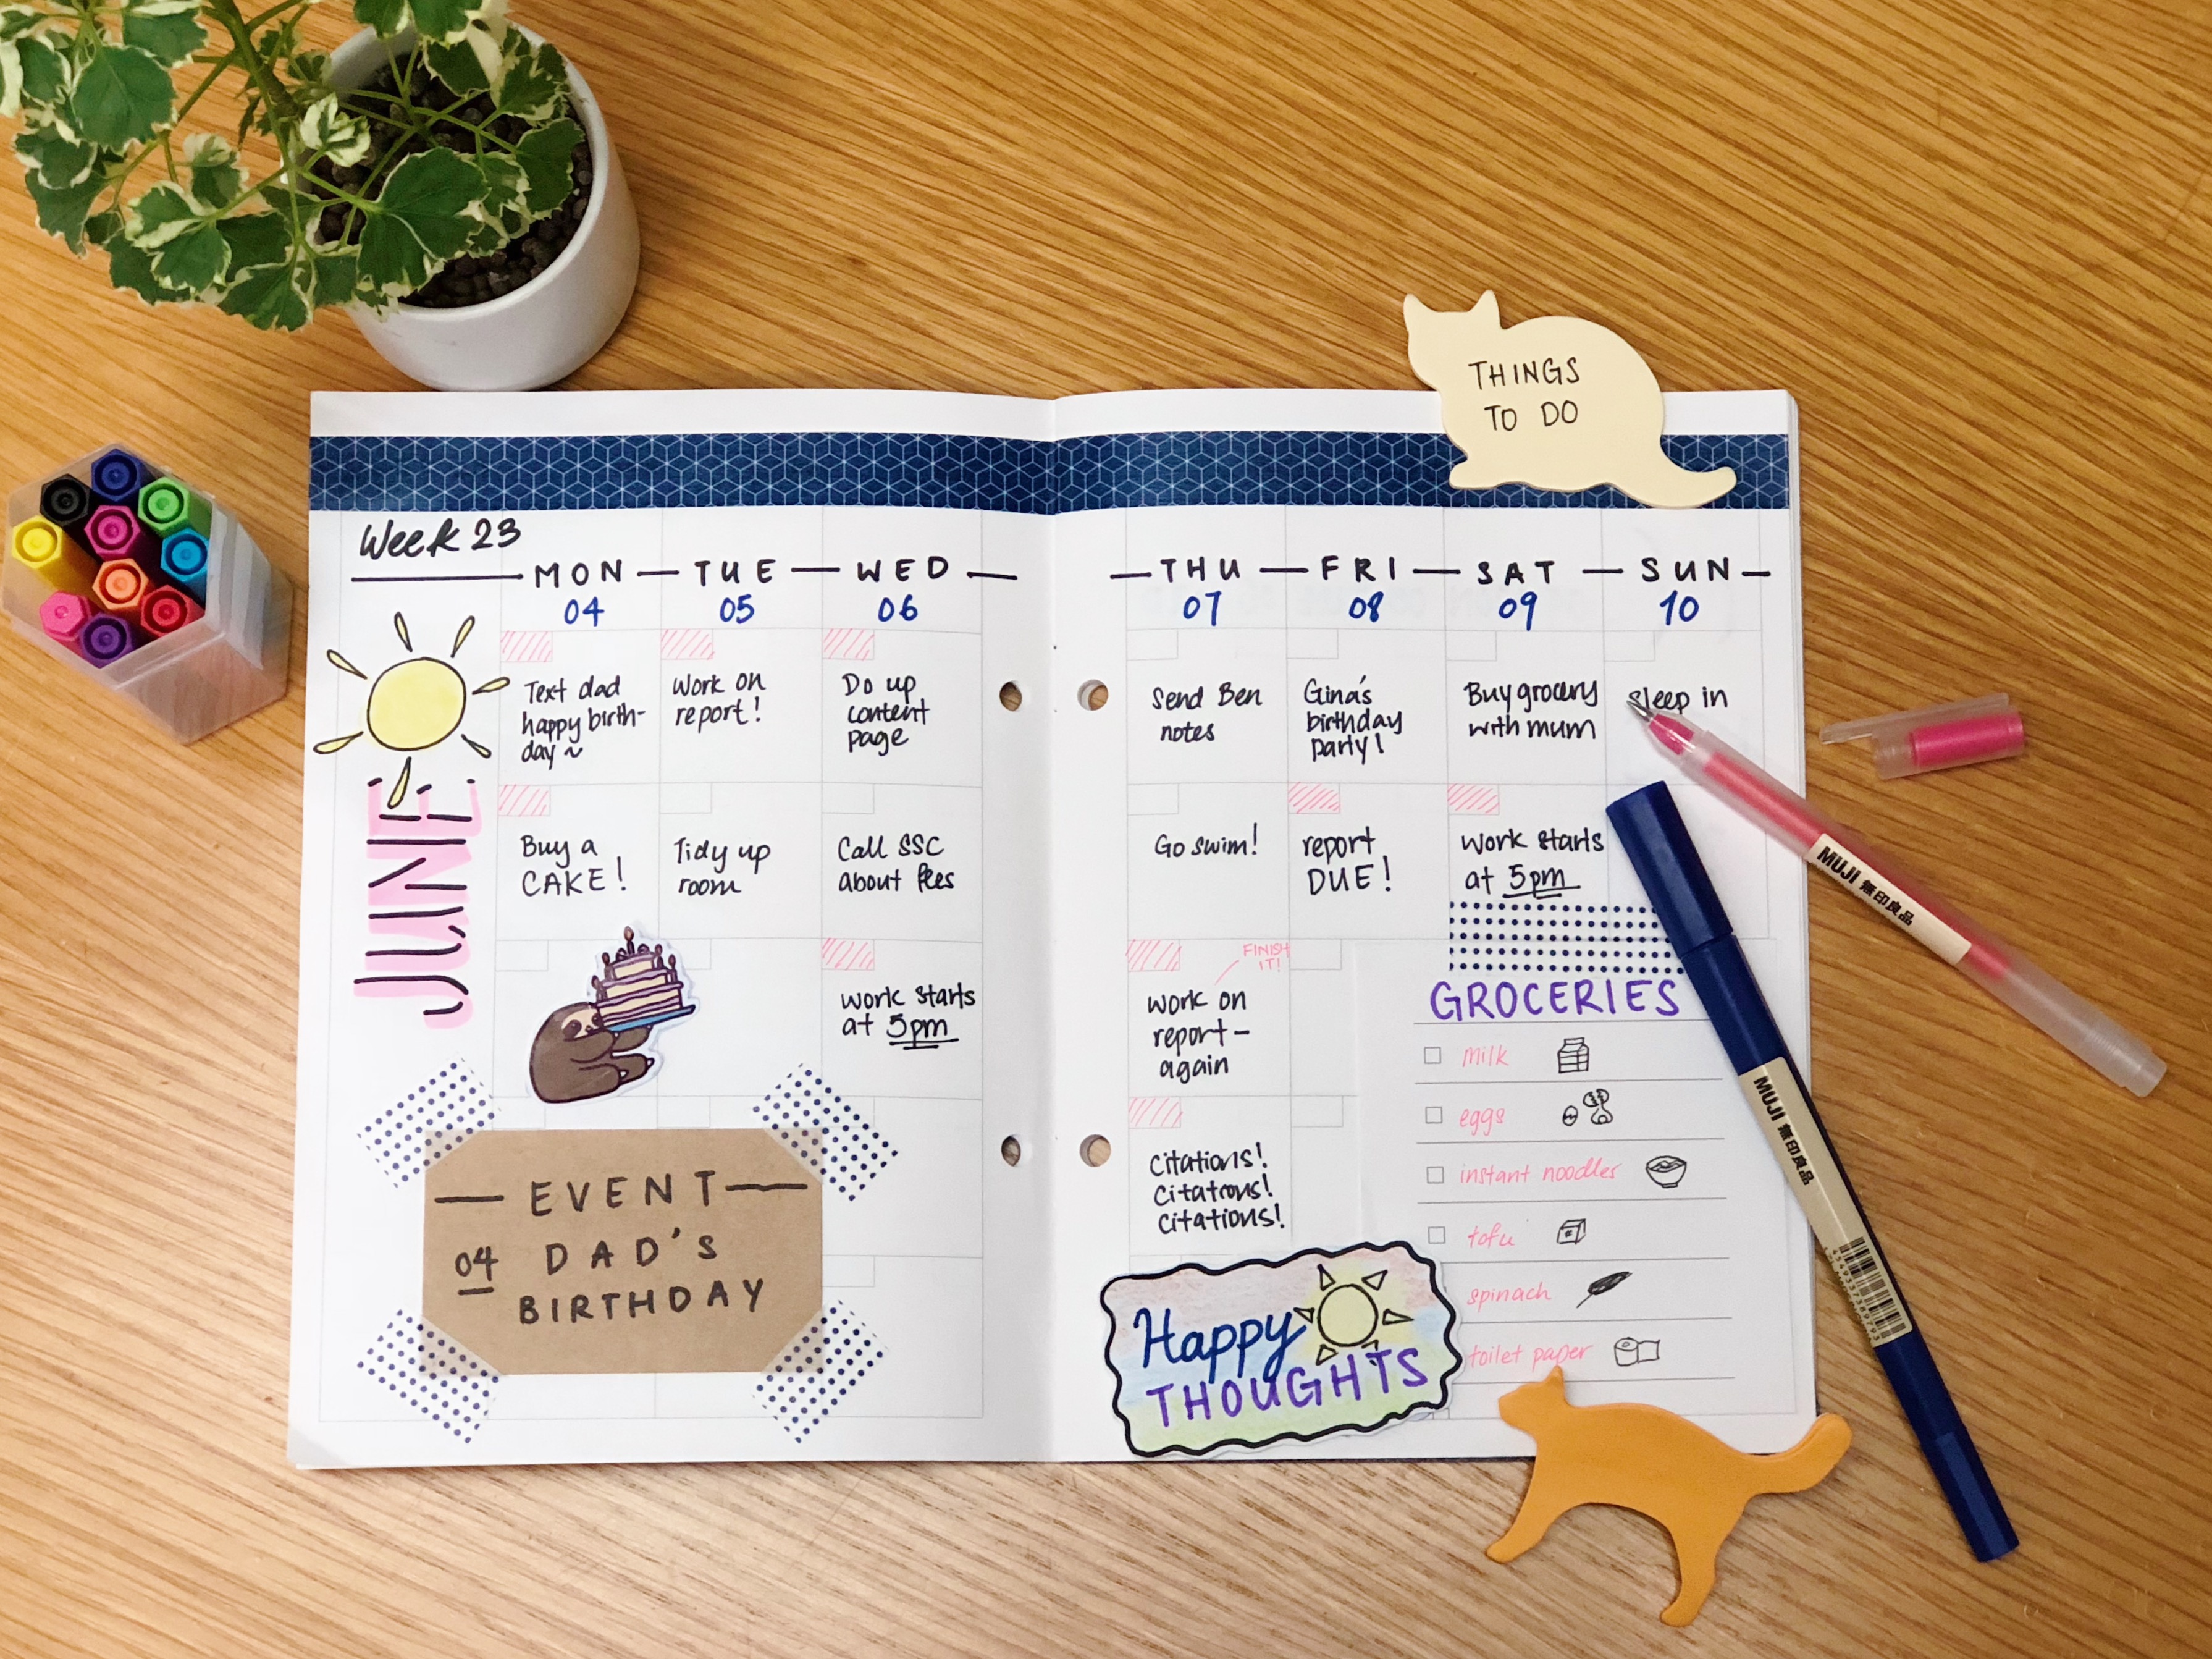 THINGS
TO DO
Week 23
MON TUE WED THU FRI SAT SUN
04 05 06 07 08 09 10
JUNE
Text dad
happy birth-
day ~
Work on
report!
Do up
content
page
Send Ben
notes
Gina's
birthday
party!
Buy grocery
with mum
Sleep in
Buy a
CAKE!
Tidy up
room
Call SSC
about fees
Go swim!
report
DUE!
Work starts
at 5pm
Work starts
at 5pm
FINISH
IT!
Work on
report-
again
Citations!
Citations!
Citations!
EVENT
04 DAD'S
BIRTHDAY
GROCERIES
milk
eggs
instant noodles
tofu
spinach
toilet paper
Happy
THOUGHTS
MUJI 無印良品
MUJI 無印良品